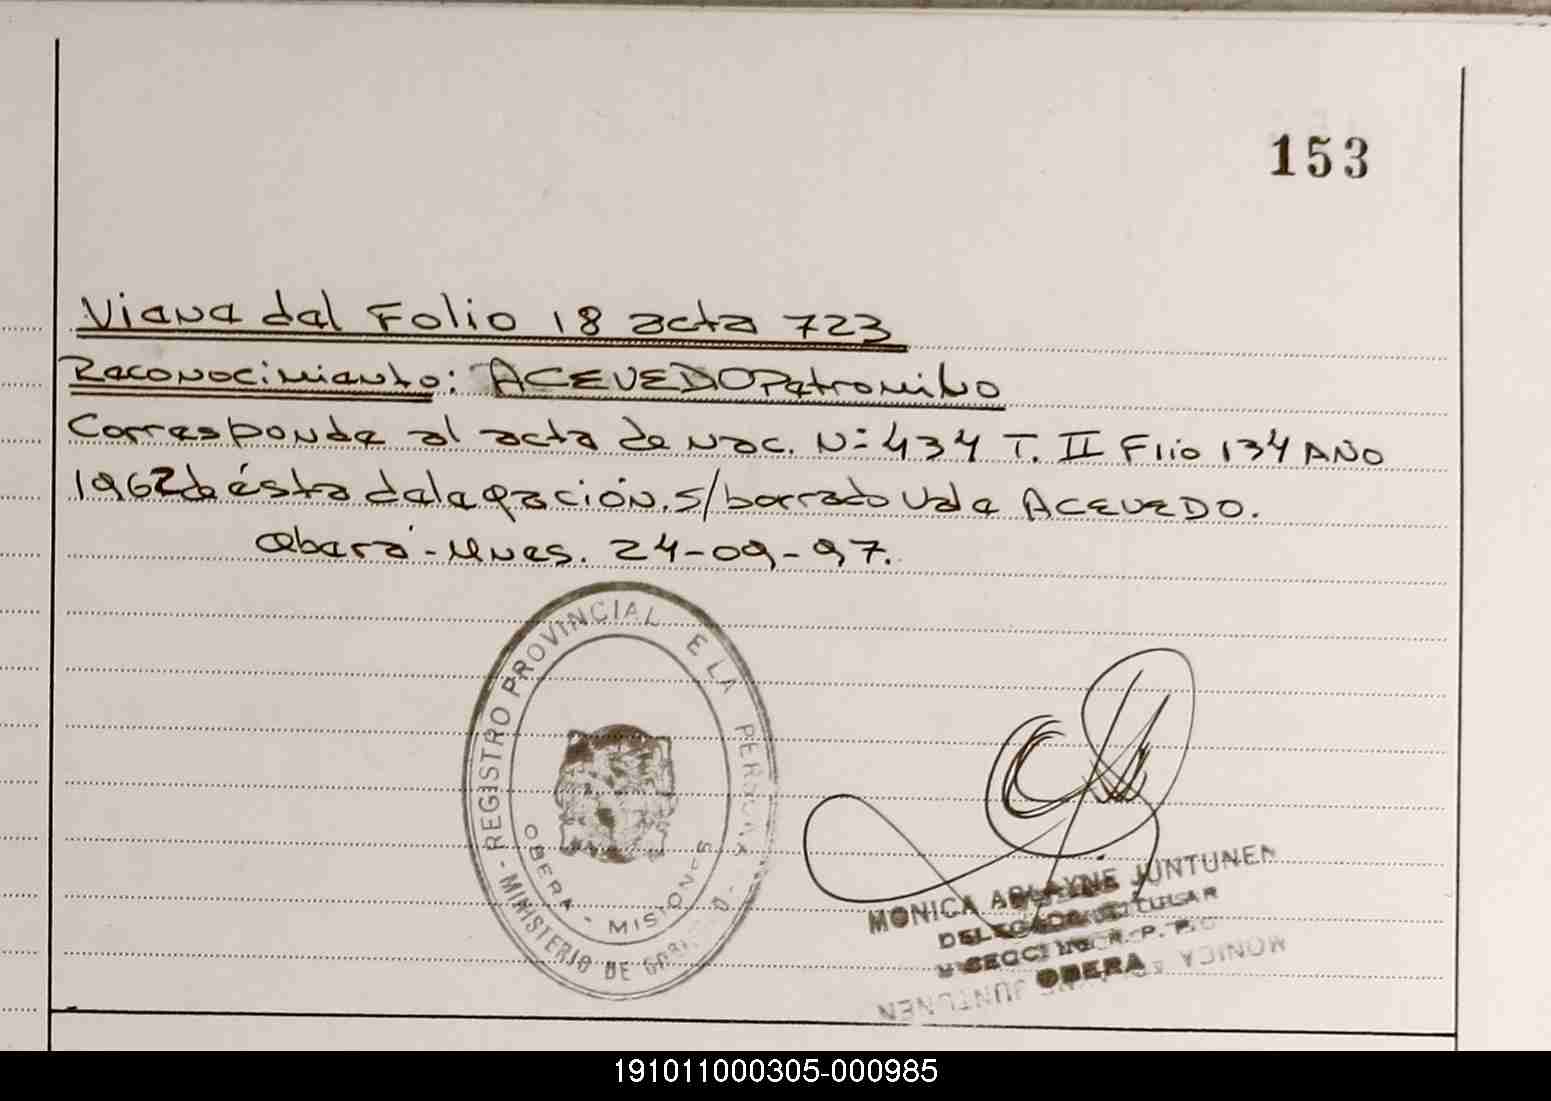 153
Viene del Folio 18 acta 723
Reconocimiento: ACEVEDO Petronilo
Corresponde al acta de nac. N: 434 T. II Flio 134 AÑO
1962 de ésta delegación. s/borrado Vale ACEVEDO.
Oberá - Mnes. 24-09-97.
REGISTRO PROVINCIAL E LA PERSONA
OBERA - MISIONES
- MINISTERIO DE
MONICA JUNTUNEN
DELEGADA TITULAR
OBERA
MONICA JUNTUNEN
191011000305-000985